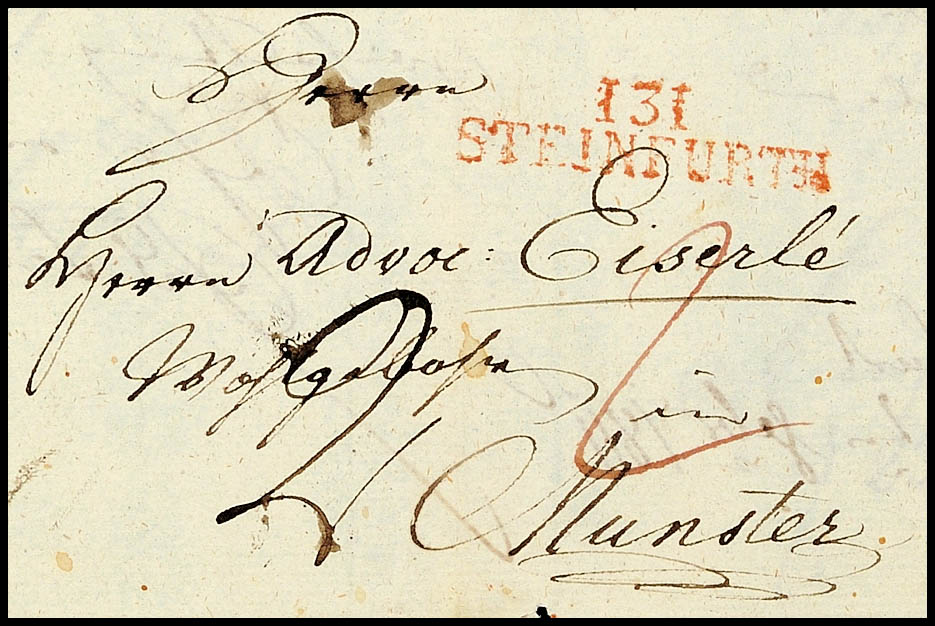 Herrn
131
STEINFURTH
Herrn Advoc: Eiserlé
Wohlgebohr
2
2
in
Munster